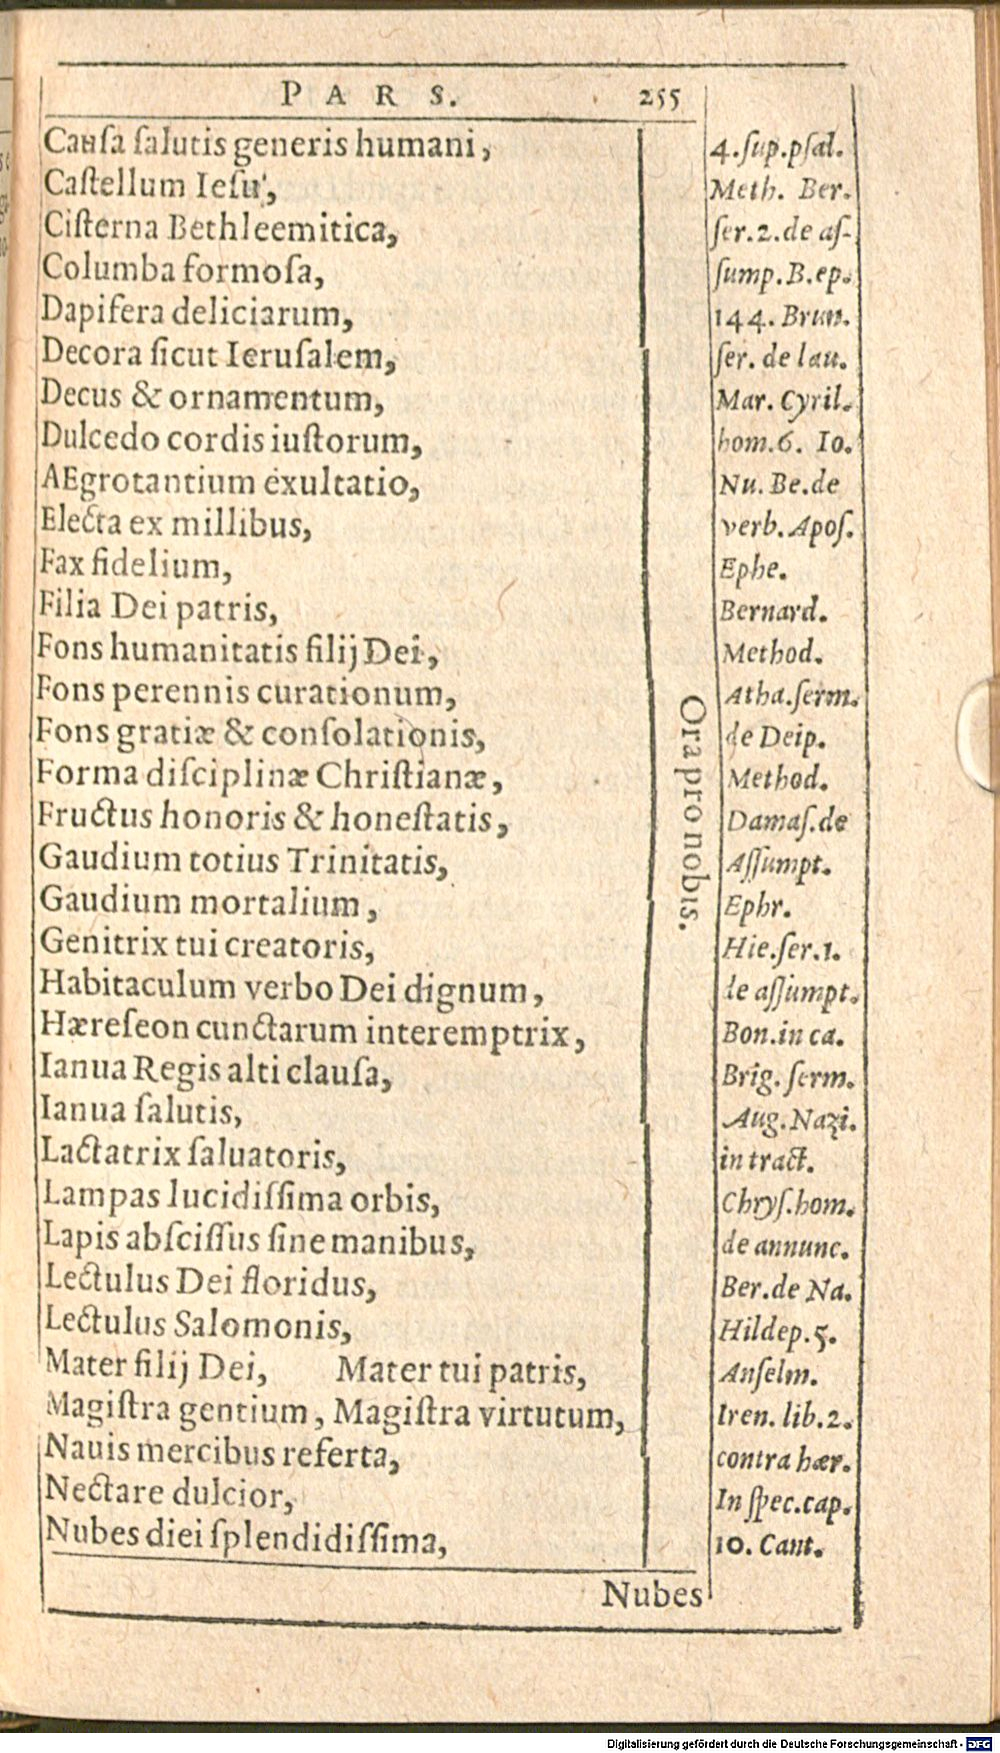 PARS. 255
Causa salutis generis humani,
Castellum Iesu,
Cisterna Bethleemitica,
Columba formosa,
Dapifera deliciarum,
Decora sicut Ierusalem,
Decus & ornamentum,
Dulcedo cordis iustorum,
AEgrotantium exultatio,
Electa ex millibus,
Fax fidelium,
Filia Dei patris,
Fons humanitatis filij Dei,
Fons perennis curationum,
Fons gratiæ & consolationis,
Forma disciplinæ Christianæ,
Fructus honoris & honestatis,
Gaudium totius Trinitatis,
Gaudium mortalium,
Genitrix tui creatoris,
Habitaculum verbo Dei dignum,
Hæreseon cunctarum interemptrix,
Ianua Regis alti clausa,
Ianua salutis,
Lactatrix saluatoris,
Lampas lucidissima orbis,
Lapis abscissus sine manibus,
Lectulus Dei floridus,
Lectulus Salomonis,
Mater filij Dei, Mater tui patris,
Magistra gentium, Magistra virtutum,
Nauis mercibus referta,
Nectare dulcior,
Nubes diei splendidissima,
Ora pro nobis.
4. sup. psal.
Meth. Ber.
ser. 2. de as-
sump. B. ep.
144. Brun.
ser. de lau.
Mar. Cyril.
hom. 6. Io.
Nu. Be. de
verb. Apos.
Ephe.
Bernard.
Method.
Atha. serm.
de Deip.
Method.
Damas. de
Assumpt.
Ephr.
Hie. ser. 1.
de assumpt.
Bon. in ca.
Brig. serm.
Aug. Nazi.
in tract.
Chrys. hom.
de annunc.
Ber. de Na.
Hildep. 5.
Anselm.
Iren. lib. 2.
contra hær.
In spec. cap.
10. Cant.
Nubes
Digitalisierung gefördert durch die Deutsche Forschungsgemeinschaft - DFG